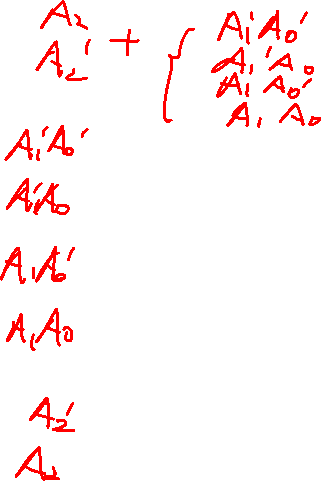 A₂
A₂' + { A₁'A₀'
A₁'A₀
A₁A₀'
A₁A₀
A₁'A₀'
A₁'A₀
A₁A₀'
A₁A₀
A₂'
A₂